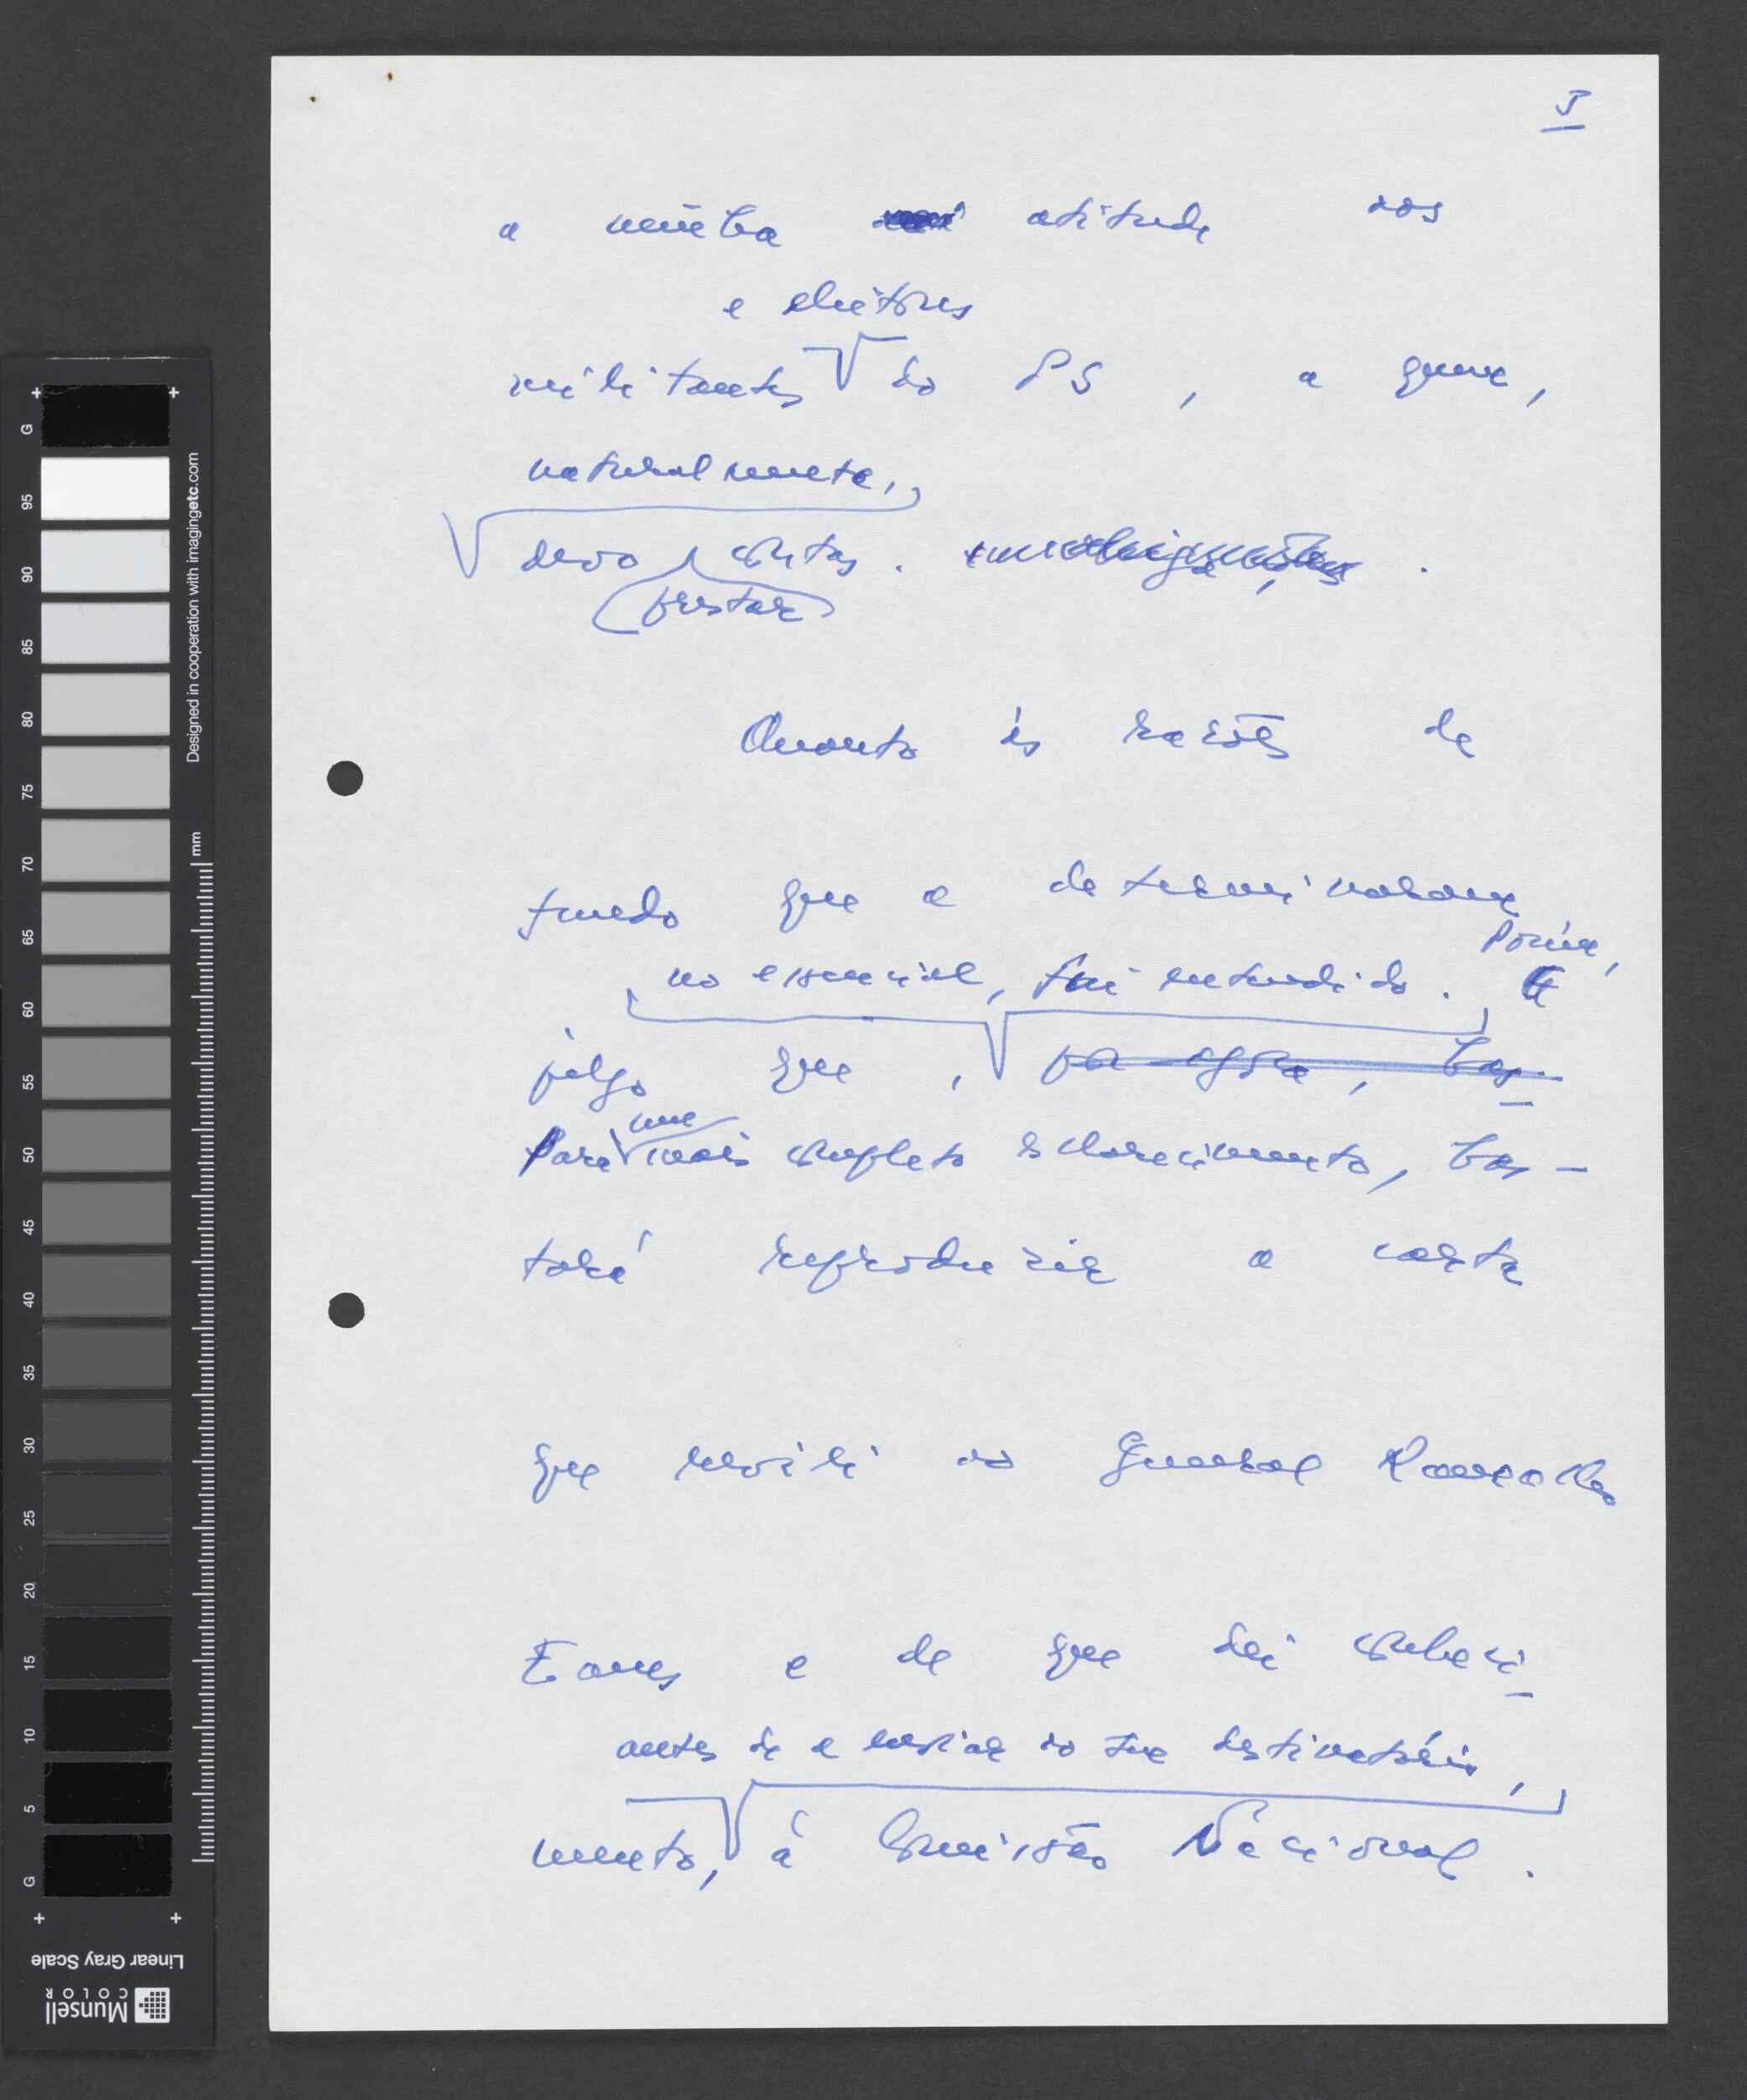 5
a minha atitude aos
e eleitores
militantes do PS, a quem,
naturalmente,
devo contas.
prestar
Quanto às razões de
fundo que a determinaram
Porém,
no essencial, fui entendido.
julgo que, por agora, bas-
Para um mais completo esclarecimento, bas-
tará reproduzir a carta
que escrevi ao General Ramalho
Eanes e de que dei conheci-
antes de a enviar ao seu destinatário,
mento, à Comissão Nacional.
G
95
90
85
80
75
70
65
60
55
50
45
40
35
30
25
20
15
10
5
G
Designed in cooperation with imagingetc.com
mm
Linear Gray Scale
Munsell
COLOR